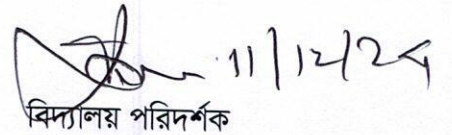 11/12/24
বিদ্যালয় পরিদর্শক